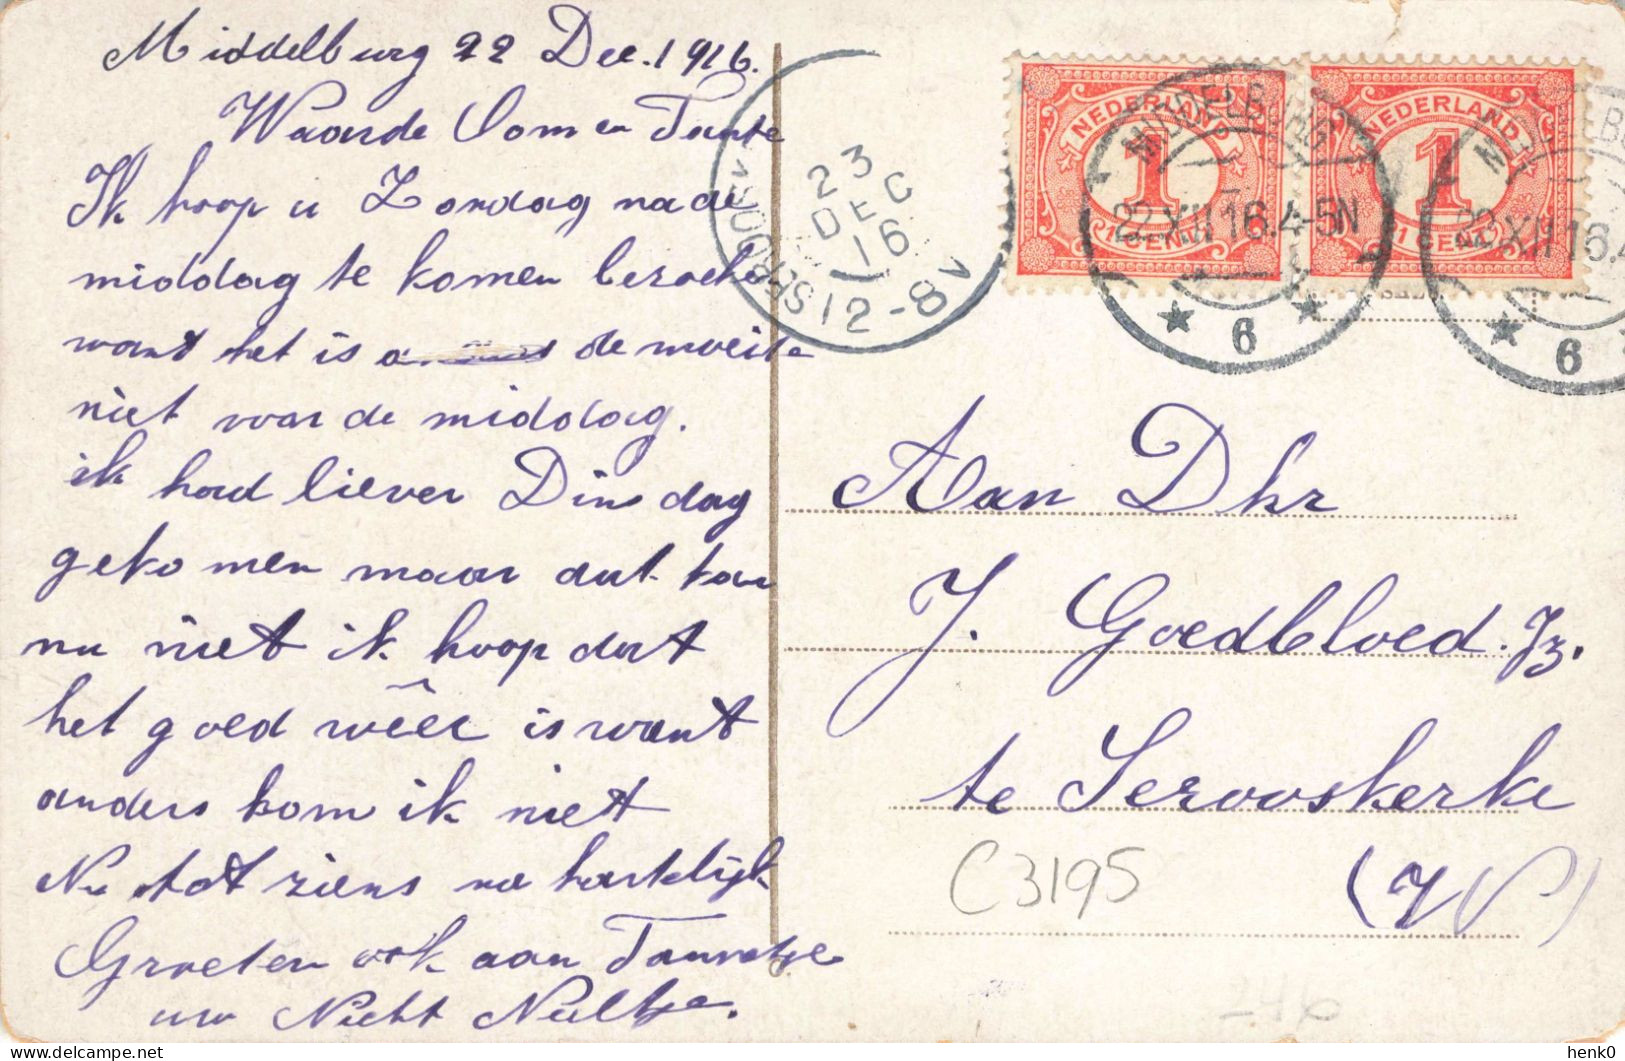 Middelburg 22 Dec. 1916.
Waarde Oom en Tante
Ik hoop u Zondag na de
middag te komen bezoeke
want het is de moeite
niet voor de middag.
ik had liever Dinsdag
gekomen maar dat kan
nu niet ik hoop dat
het goed wêer is want
anders kom ik niet
Nu tot ziens na hartelijk
Groeten ook aan Tannetje
uw Nicht Neeltje.
SEROOSKERKE
23
DEC
16
12-8V
NEDERLAND
1
1 CENT
NEDERLAND
1
1 CENT
MIDDELBURG
22.XII.16.4-5N
6
22.XII.16.4
6
Aan Dhr
J. Goedbloed. Jz.
te Serooskerke
(W)
C3195
henk0